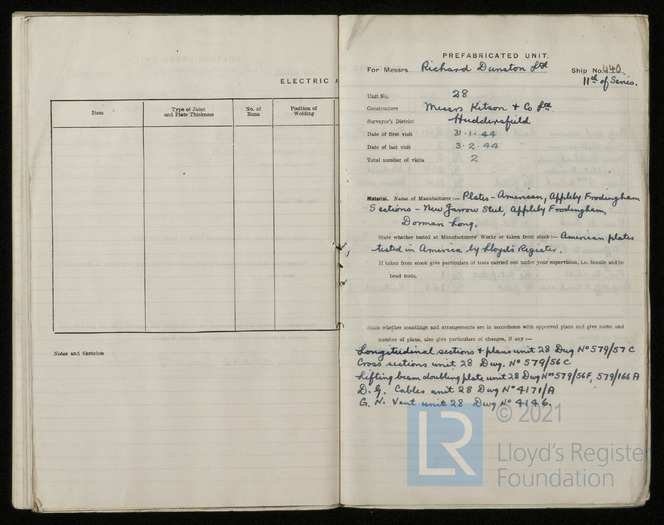 ELECTRIC
Item
Type of Joint
and Plate Thickness
No. of
Runs
Position of
Welding
Notes and Sketches
PREFABRICATED UNIT.
For Messrs. Richard Dunston Ltd Ship No. 440.
11th of Series.
Unit No. 28
Constructors Messrs Kitson & Co Ltd
Surveyor's District Huddersfield
Date of first visit 31.1.44
Date of last visit 3.2.44
Total number of visits 2
Material. Name of Manufacturer :— Plates - American, Appleby Frodingham
Sections - New Jarrow Steel, Appleby Frodingham,
Dorman Long.
State whether tested at Manufacturers' Works or taken from stock :— American plates
tested in America by Lloyd's Register.
If taken from stock give particulars of tests carried out under your supervision, i.e. tensile and/or
bend tests.
State whether scantlings and arrangements are in accordance with approved plans and give name and
number of plans, also give particulars of changes, if any :—
Longitudinal sections & plans unit 28 Dwg No 579/57 C
Cross sections unit 28 Dwg. No 579/56 C
Lifting beam doubling plate unit 28 Dwg Nos 579/56F, 579/166 A
D. G. Cables unit 28 Dwg No 4171/A
G. N. Vent unit 28 Dwg No 4146.
LR
© 2021
Lloyd's Register
Foundation